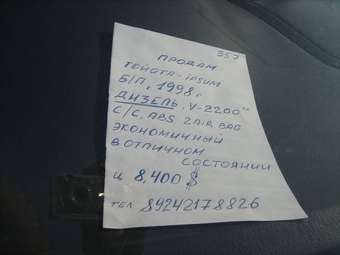 357
ПРОДАМ
ТОЙОТА-IPSUM
Б/П, 1998г
ДИЗЕЛЬ, V-2200"
С/С, ABS 2AIR BAG
ЭКОНОМИЧНЫЙ
В ОТЛИЧНОМ
СОСТОЯНИИ
Ц 8,400$
ТЕЛ 89242178826